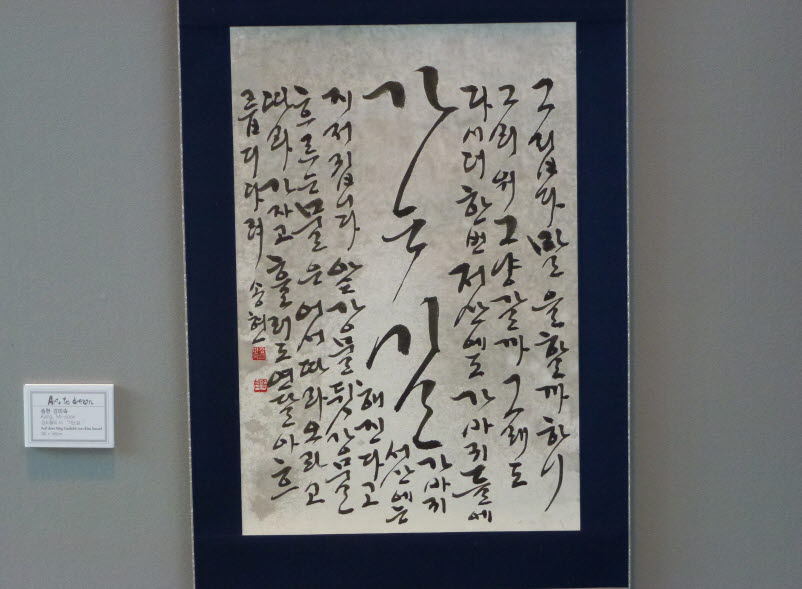 그립다 말을 할까 하니
그리워 그냥 갈까 그래도
다시 더 한번 저 산에도 가마귀 들에
가는 길
가마귀
서산에는
해 진다고
지저귑니다 앞강물 뒷강물
흐르는 물은 어서 따라오라고
따라가자고 흘러도 연달아 흐
릅디다려 송현